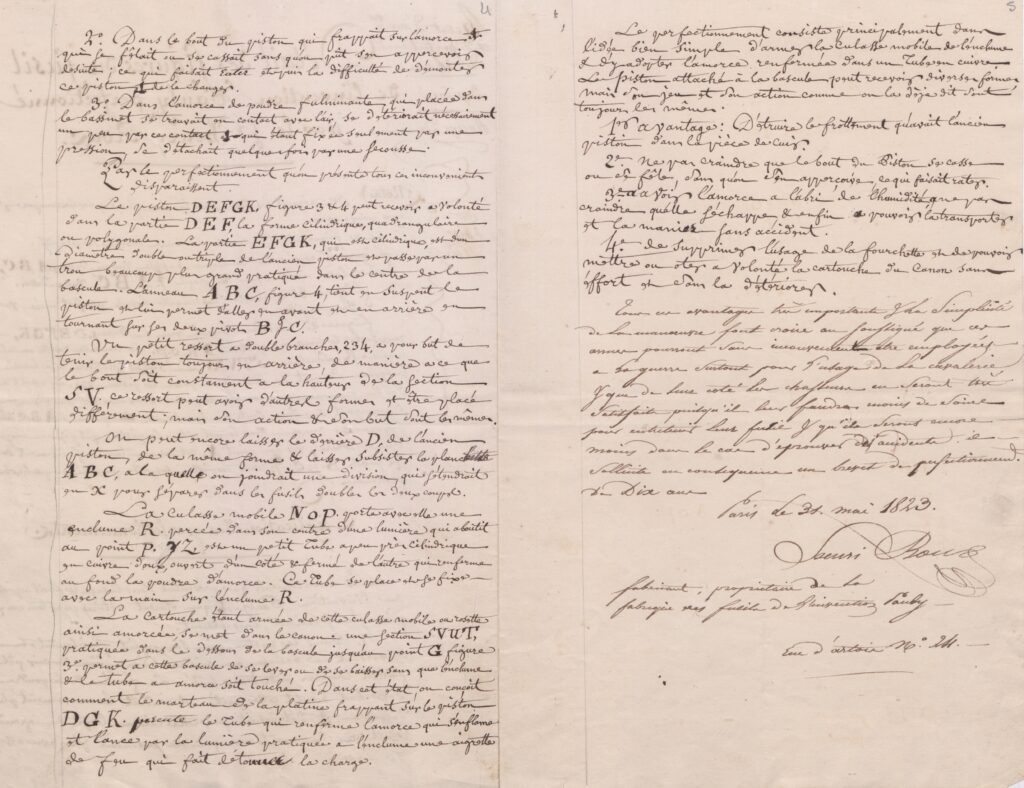 4
2º. Dans le bout du piston qui frappait sur l'amorce &
qui se fêlait ou se cassait sans qu'on pût s'en appercevoir
desuite; ce qui faisait rater et puis la difficulté de démonter
ce piston et de le changer.
3º. Dans l'amorce de poudre fulminante, qui placée dans
le bassinet se trouvait en contact avec l'air, se détériorait nécessairement
un peu par ce contact & qui étant fixée seulement par une
pression, se détachait quelquefois par une secousse.
Par le perfectionnement qu'on présente tous ces inconvenients
disparaissent.
Le piston DEFGK, figure 3 & 4 peut recevoir a volonté
dans la partie DEF, la forme cilidrique, quadrangulaire
ou polygonale. La partie EFGK, qui est cilidrique est d'un
diamètre double ou triple de l'ancien piston et passe par un
trou beaucoup plus grand pratiqué dans le centre de la
bascule. L'anneau ABC, figure 4, tient en suspent le
piston et lui permet d'aller en avant et en arrière en
tournant sur ses deux pivots B & C.
Un petit ressort a double branches, 234, a pour but de
tenir le piston toujours en arrière, de manière a ce que
le bout soit constament a la hauteur de la section
SV. ce ressort peut avoir d'autres formes et être placé
différement; mais son action & son but sont les mêmes.
On peut encore laisser le derrière D, de l'ancien
piston, de la même forme & laisser subsister la planchette
ABC, a la quelle on joindrait une division, qui s'étendrait
en X pour séparer dans les fusils doubles les deux coups.
La culasse mobile NOP. porte avec elle une
enclume R. percée dans son centre d'une lumière, qui aboutit
au point P. YZ, est un petit Tube a peu près cilindrique
en cuivre doux, ouvert d'un coté & fermé de l'autre qui renferme
au fond la poudre d'amorce. Ce Tube se place et se fixe
avec la main sur l'enclume R.
La cartouche étant armée de cette culasse mobile ou rosette
ainsi amorcée, se met dans le canon & une section SVUT,
pratiquée dans le dessous de la bascule jusqu'au point G figure
3º. permet a cette bascule de se lever ou de se baisser sans que l'enclume
& le tube a amorce soit touché. Dans cet état, on conçoit
comment le marteau de la platine frappant sur le piston
DGK. percute le Tube qui renferme l'amorce qui s'enflame
et lance par la lumière pratiquée a l'enclume une aigrette
de feu qui fait détonner la charge.
5
Le perfectionnement consiste principalement dans
l'idée bien simple d'armer la culasse mobile de l'enclume
& d'y adapter l'amorce renfermée dans un Tube en cuivre.
Le Piston attaché à la bascule peut recevoir diverses formes
mais son jeu et son action comme on l'a déja dit sont
toujours les mêmes.
1er avantage: Détruire le frottement qu'avait l'ancien
piston dans la pièce de cuir.
2º. Ne pas craindre que le bout du Piston se casse
ou se fêle, sans qu'on s'en apperçoive, ce qui faisait rater.
3º. avoir l'amorce a l'abri de l'humidité, ne pas
craindre qu'elle s'echappe & enfin pouvoir la transporter
et la manier sans accident.
4º. de supprimer l'usage de la fourchette et de pouvoir
mettre ou oter a volonté la cartouche du Canon sans
éffort et sans la détériorer.
Tous ces avantages très importants & la Simplicité
de la manœuvre font croire au soussigné que ces
armes pourront sans inconvenient être employées
a la guerre surtout pour l'usage de la cavalerie
& que de leur coté les chasseurs en seront très
satisfaits puisqu'il leur faudra moins de soins
pour entretenir leur fusil & qu'ils seront encore
moins dans le cas d'éprouver des accidents. il
Sollicite en consequence un brevet de perfectionement
de Dix ans
Paris le 31. mai 1823.
Henri Roux
fabricant, proprietaire de la
fabrique des fusils d'Invention Pauly
Rue d'artois Nº. 24.